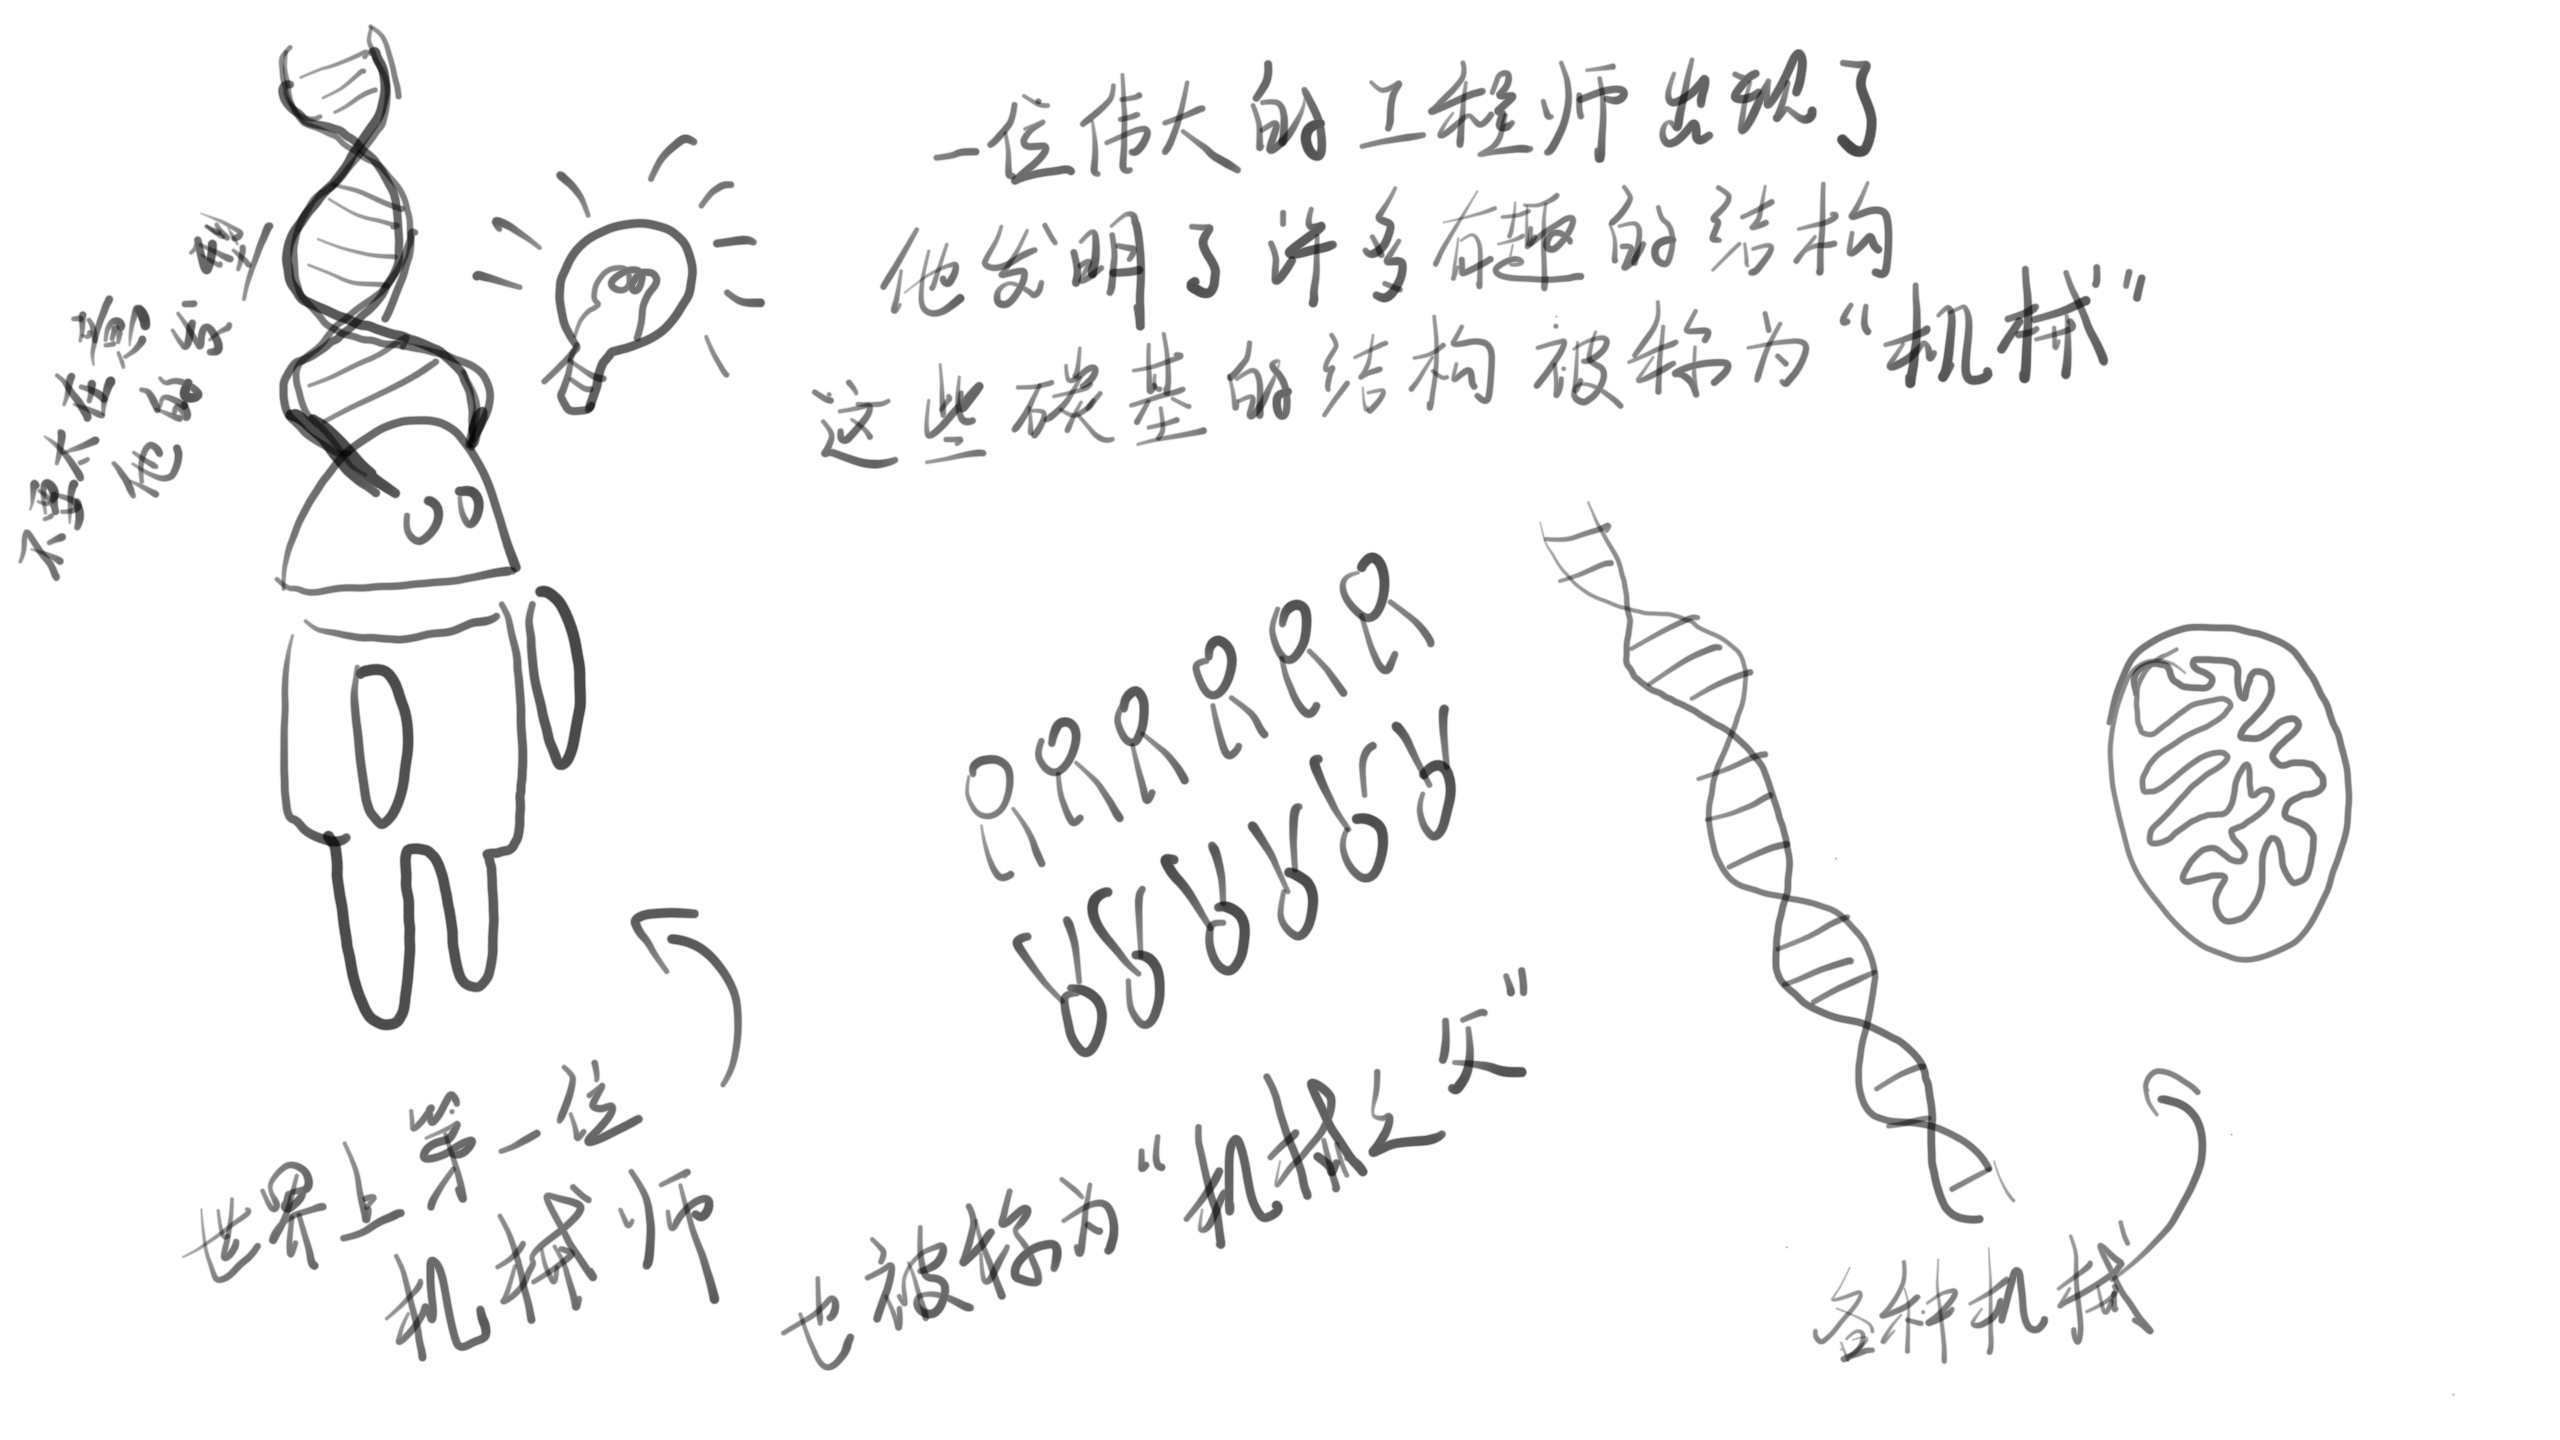 一位伟大的工程师出现了
他发明了许多有趣的结构
这些碳基的结构被称为“机械”
不要太在意
他的发型
世界上第一位
机械师
也被称为“机械之父”
各种机械